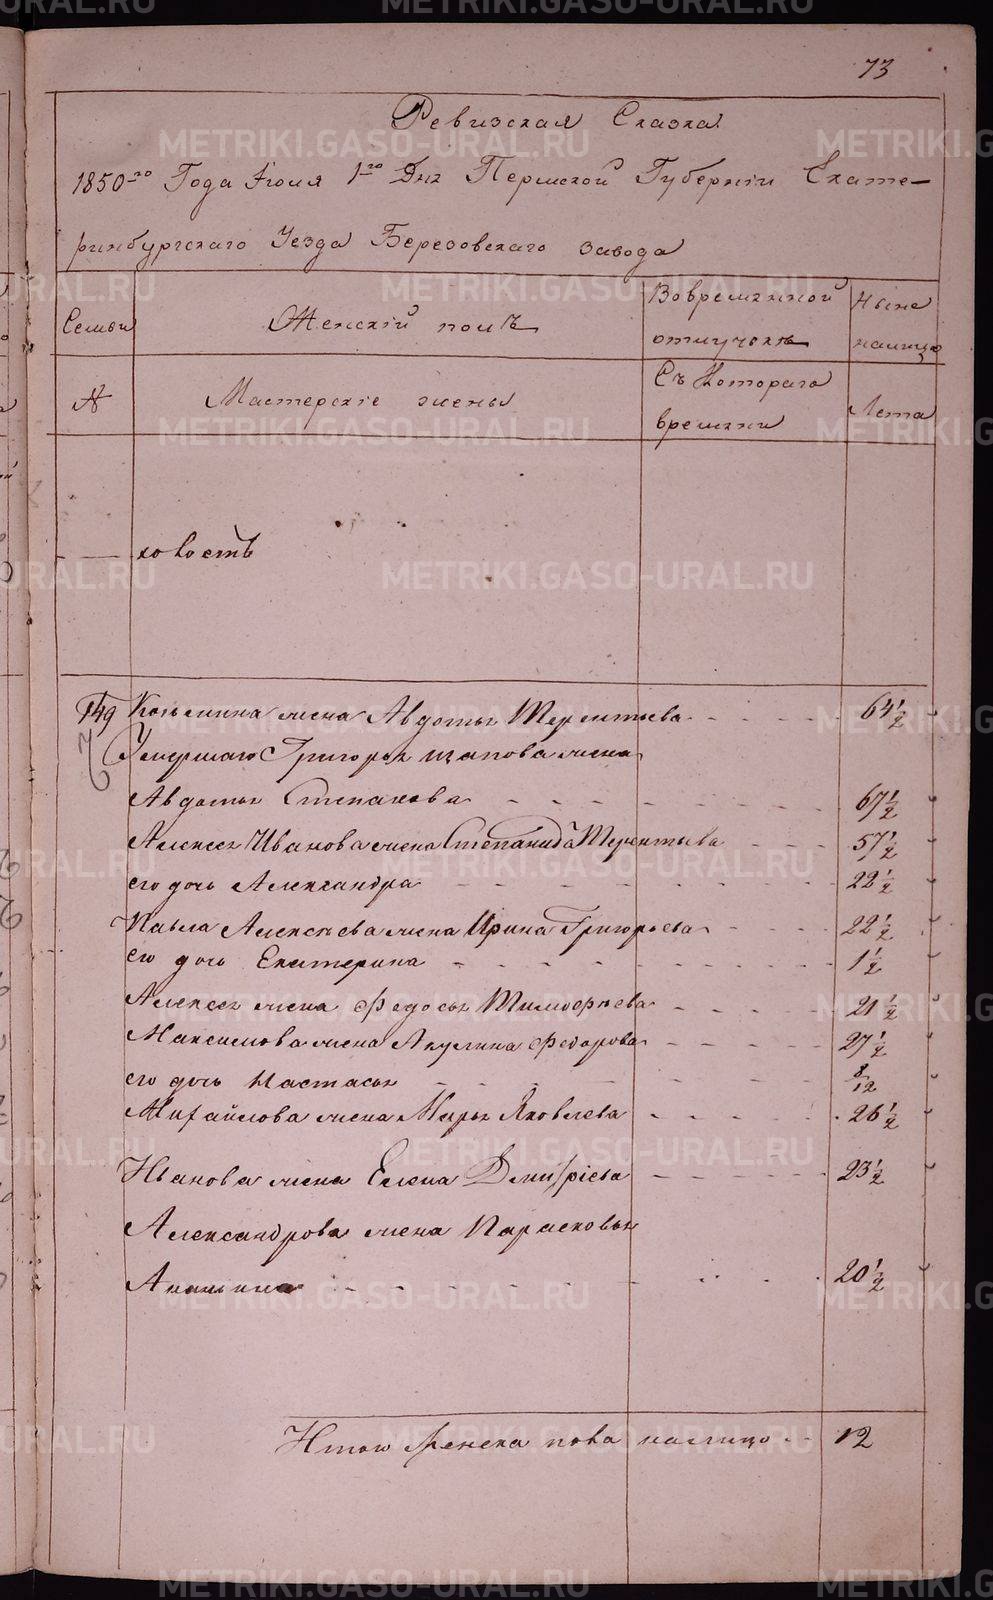 73
Ревизская Сказка
1850го Года Июля 1го Дня Пермской Губернiи Екате-
ринбургскаго Уезда Березовскаго завода
Семьи
Женскiй полъ
Вовременной
отлучькѣ
Ныне
налицо
№
Мастерскiе жены
Съ Котораго
времени
Лета
ховость
149 Козьмина жена Авдотья Терентьева 64 1/2
67 Умершаго Григорья жена
Авдотья Степанова 67 1/2
Алексея Иванова жена Степанида Терентьева 57 1/2
его дочь Александра 22 1/2
Павла Алексеева жена Ирина Григорьева 22 1/2
его дочь Екатерина 1 1/2
Алексея жена Федосья Тимофеева 21 1/2
Максимова жена Акулина Федорова 27 1/2
его дочь Настасья 8/12
Михайлова жена Марья Яковлева 26 1/2
Иванова жена Елена Дмитрiева 23 1/2
Александрова жена Парасковья
Ананьина 20 1/2
Итого Женска пола налицо 12
METRIKI.GASO-URAL.RU